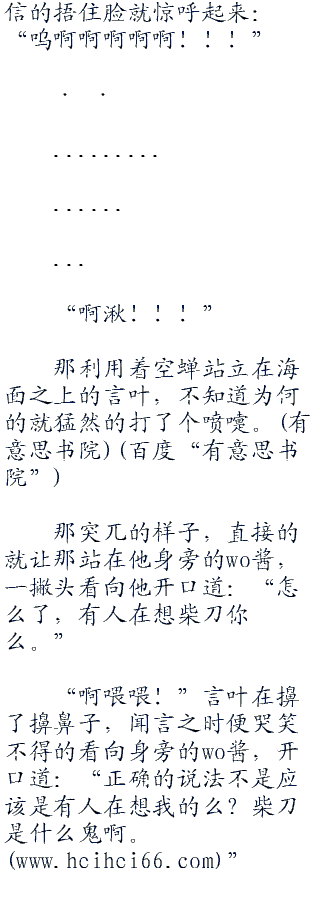 信的捂住脸就惊呼起来：
“呜啊啊啊啊啊！！！”
. .
.........
......
...
“啊湫！！！”
那利用着空蝉站立在海
面之上的言叶，不知道为何
的就猛然的打了个喷嚏。(有
意思书院)(百度“有意思书
院”)
那突兀的样子，直接的
就让那站在他身旁的wo酱，
一撇头看向他开口道：“怎
么了，有人在想柴刀你
么。”
“啊喂喂！”言叶在擤
了擤鼻子，闻言之时便哭笑
不得的看向身旁的wo酱，开
口道：“正确的说法不是应
该是有人在想我的么？柴刀
是什么鬼啊。
(www.hcihci66.com)”